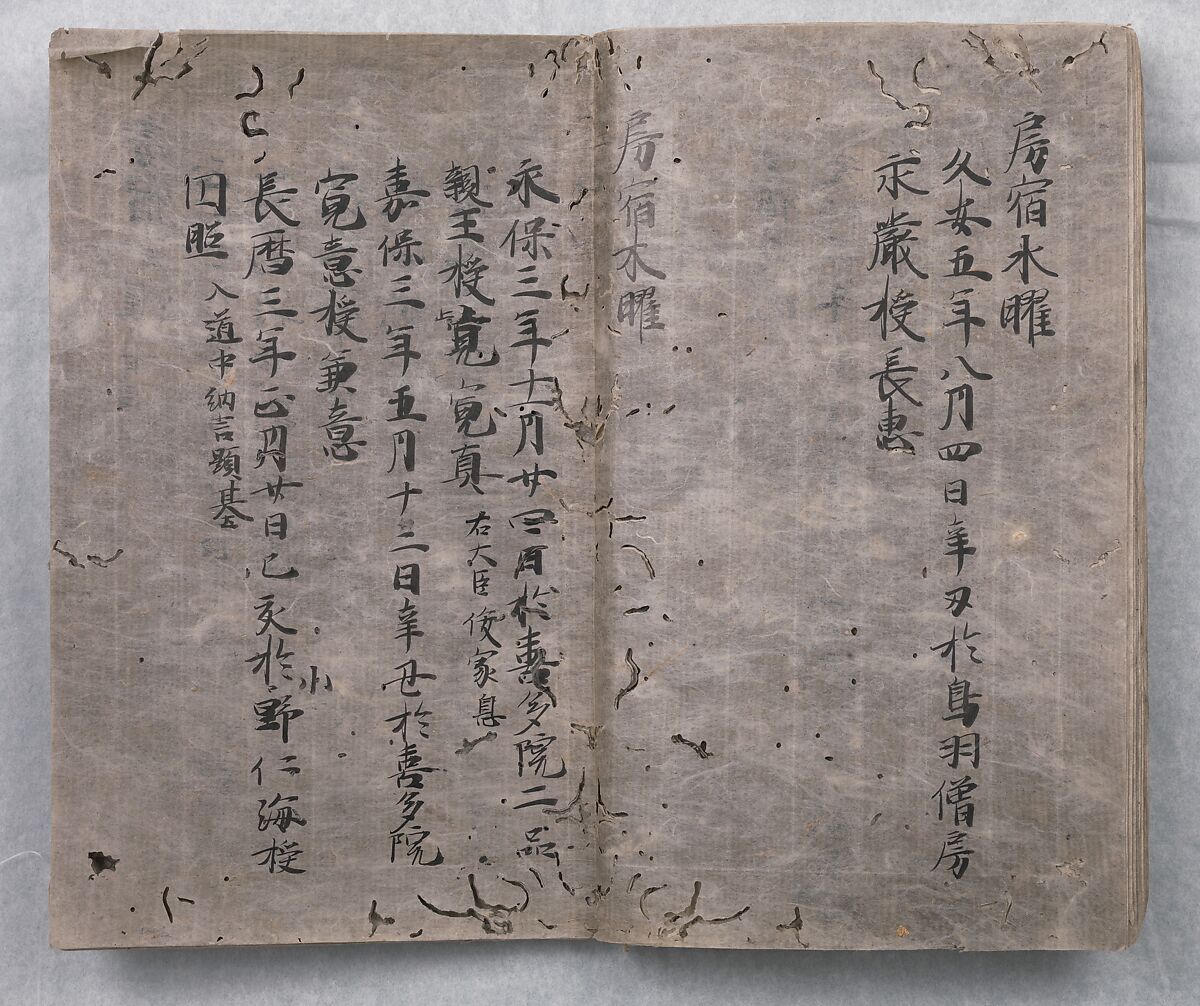 房宿水曜
久安五年八月四日辛丑於鳥羽僧房
永嚴授長惠
房宿木曜
永保三年十一月廿四日於喜多院二品
親王授寛寛真 右大臣俊家息
嘉保三年五月十二日辛丑於喜多院
寛意授兼意
長曆三年正月廿日己亥於小野仁海授
囙照 入道中納言顯基